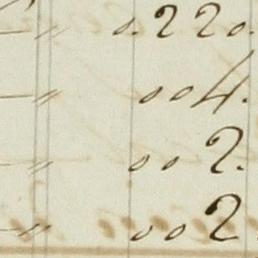 " 0.220.
" 004.
" 002.
" 002.